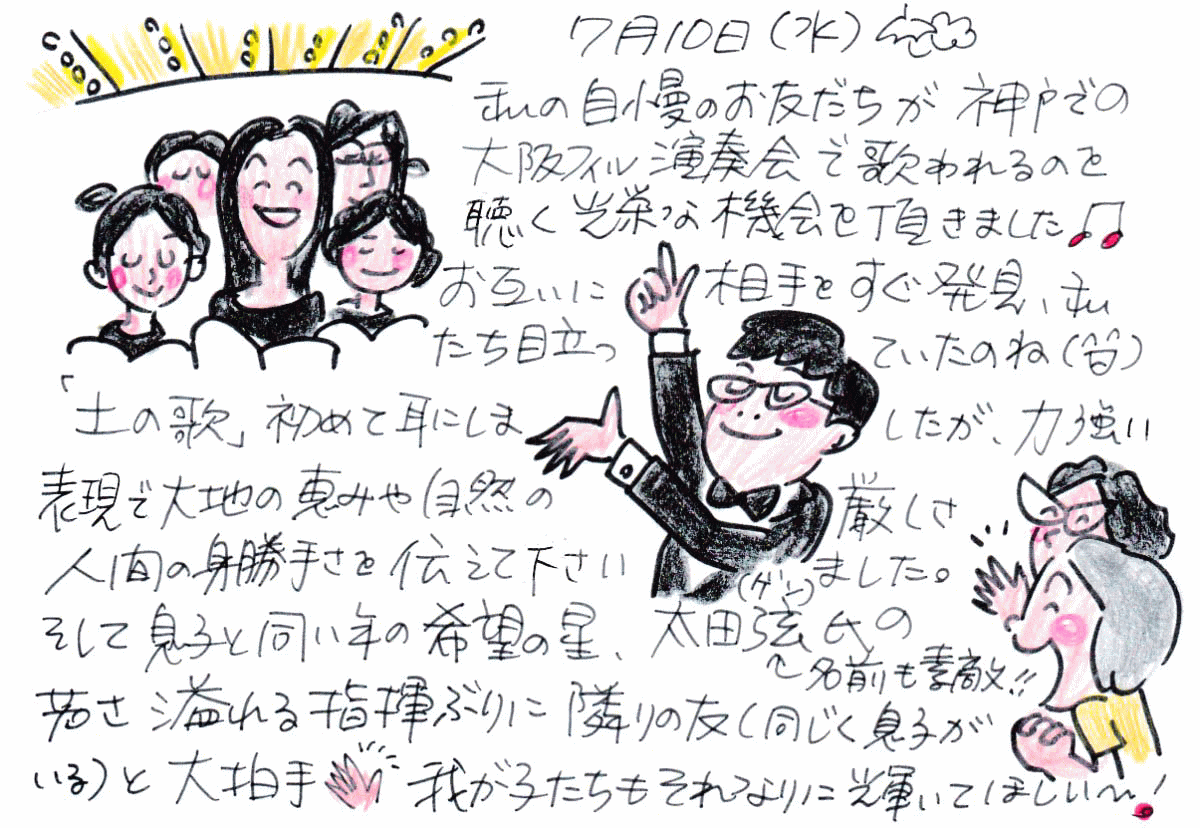 7月10日(水)
私の自慢のお友だちが神戸での
大阪フィル演奏会で歌われるのを
聴く光栄な機会を頂きました
お互いに相手をすぐ発見、私
たち目立っていたのね(笑)
「土の歌」初めて耳にしましたが、力強い
表現で大地の恵みや自然の厳しさ
人間の身勝手さを伝えて下さいました。
そして息子と同い年の希望の星、太田弦氏の
(げん)
↑名前も素敵!!
若さ溢れる指揮ぶりに隣りの友(同じく息子が
いる)と大拍手 我が子たちもそれなりに輝いてほしい〜!